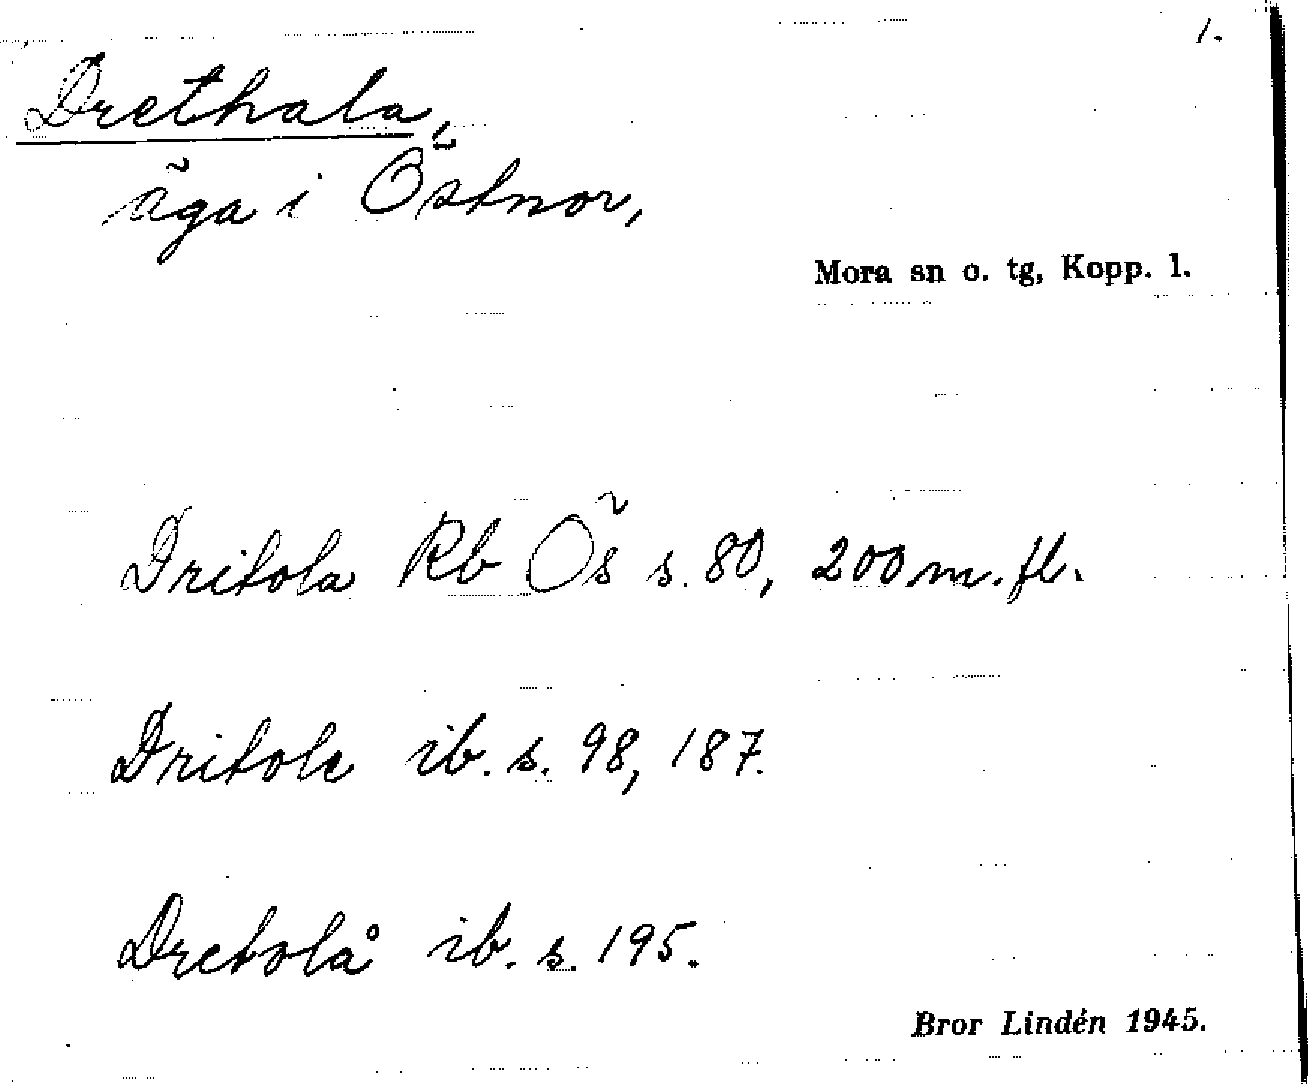 1.
Drethala,
äga i Östnor,
Mora sn o. tg, Kopp. l.
Dritola Rb Ös s. 80, 200 m. fl.
Dritole ib. s. 98, 187.
Dretolå ib. s. 195.
Bror Lindén 1945.